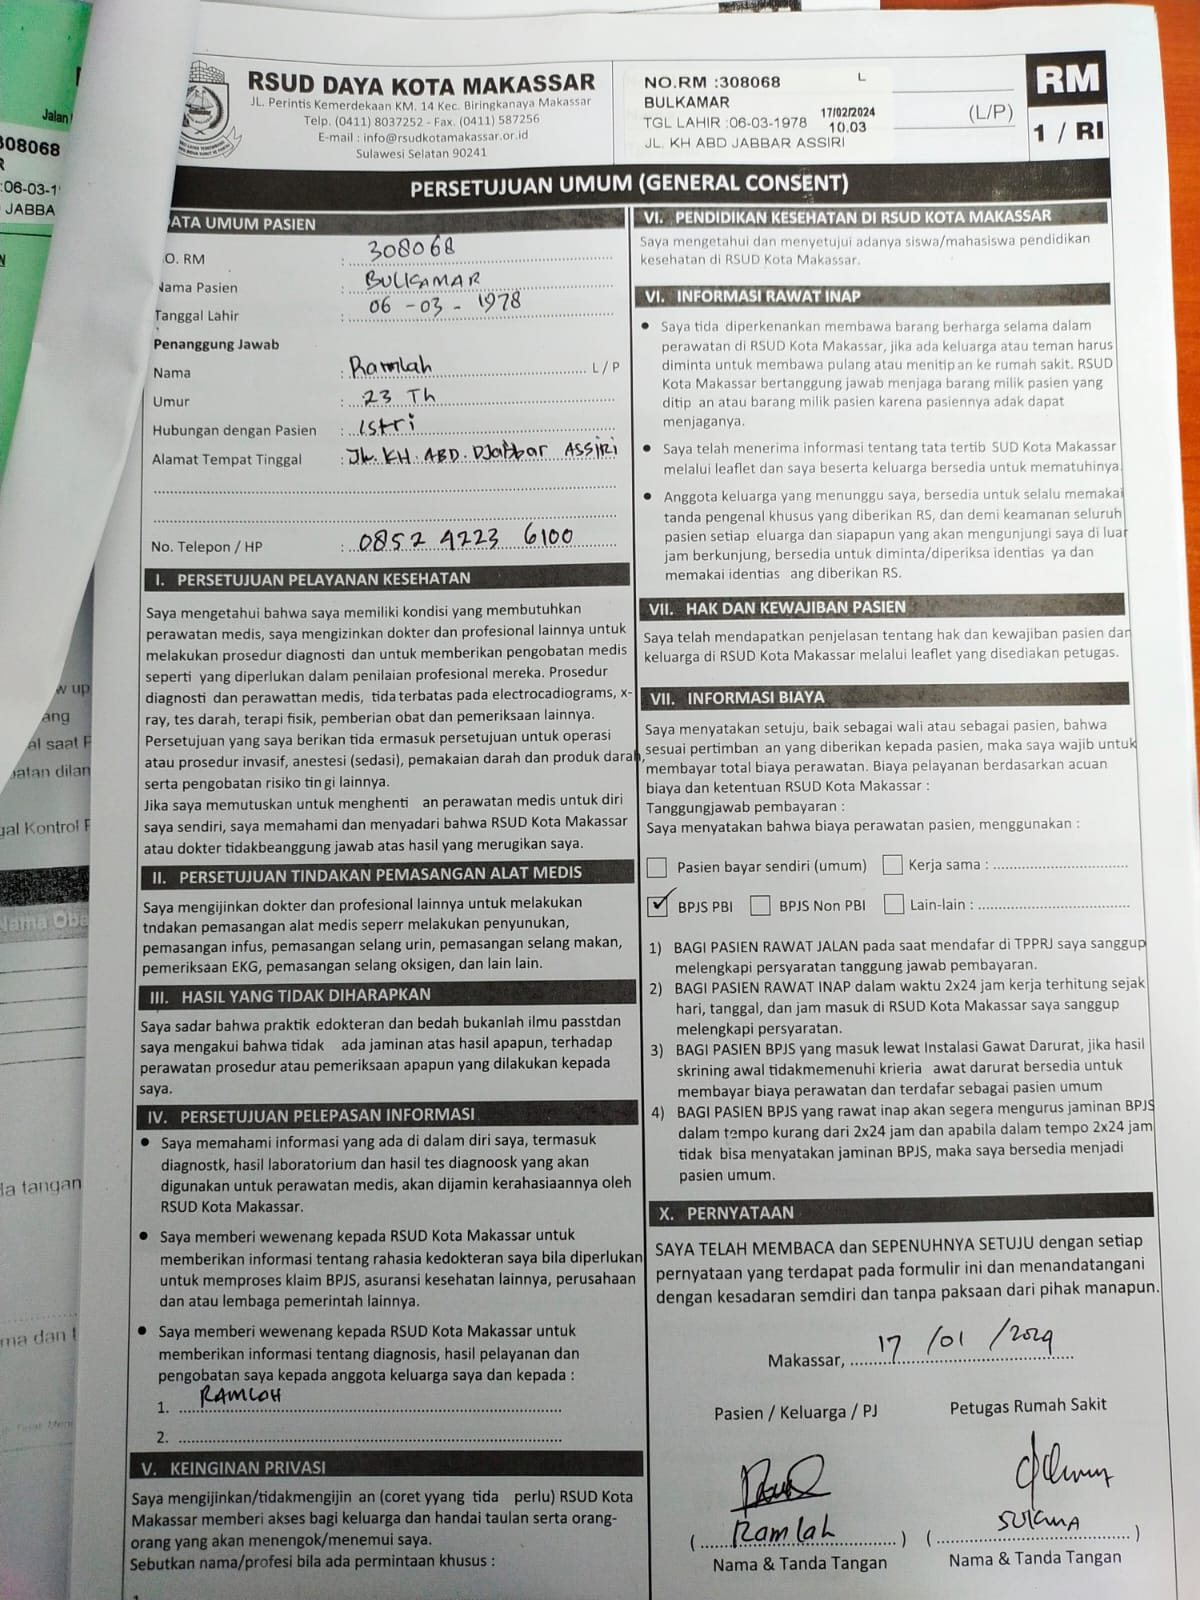 RSUD DAYA KOTA MAKASSAR
JL. Perintis Kemerdekaan KM. 14 Kec. Biringkanaya Makassar
Telp. (0411) 8037252 - Fax. (0411) 587256
E-mail : info@rsudkotamakassar.or.id
Sulawesi Selatan 90241
NO.RM :308068 L
BULKAMAR 17/02/2024
TGL LAHIR :06-03-1978 10.03
JL. KH ABD JABBAR ASSIRI
(L/P)
RM
1 / RI
PERSETUJUAN UMUM (GENERAL CONSENT)
ATA UMUM PASIEN
.O. RM : 308068
Nama Pasien : BULKAMAR
Tanggal Lahir : 06 - 03 - 1978
Penanggung Jawab
Nama : Ramlah L / P
Umur : 23 Th
Hubungan dengan Pasien : Istri
Alamat Tempat Tinggal : Jk. KH. ABD. DJabbar ASSIRI
No. Telepon / HP : 0852 4223 6100
I. PERSETUJUAN PELAYANAN KESEHATAN
Saya mengetahui bahwa saya memiliki kondisi yang membutuhkan
perawatan medis, saya mengizinkan dokter dan profesional lainnya untuk
melakukan prosedur diagnosti dan untuk memberikan pengobatan medis
seperti yang diperlukan dalam penilaian profesional mereka. Prosedur
diagnosti dan perawattan medis, tida terbatas pada electrocadiograms, x-
ray, tes darah, terapi fisik, pemberian obat dan pemeriksaan lainnya.
Persetujuan yang saya berikan tida ermasuk persetujuan untuk operasi
atau prosedur invasif, anestesi (sedasi), pemakaian darah dan produk darah,
serta pengobatan risiko tin gi lainnya.
Jika saya memutuskan untuk menghenti an perawatan medis untuk diri
saya sendiri, saya memahami dan menyadari bahwa RSUD Kota Makassar
atau dokter tidakbeanggung jawab atas hasil yang merugikan saya.
II. PERSETUJUAN TINDAKAN PEMASANGAN ALAT MEDIS
Saya mengijinkan dokter dan profesional lainnya untuk melakukan
tndakan pemasangan alat medis seperr melakukan penyunukan,
pemasangan infus, pemasangan selang urin, pemasangan selang makan,
pemeriksaan EKG, pemasangan selang oksigen, dan lain lain.
III. HASIL YANG TIDAK DIHARAPKAN
Saya sadar bahwa praktik edokteran dan bedah bukanlah ilmu passtdan
saya mengakui bahwa tidak ada jaminan atas hasil apapun, terhadap
perawatan prosedur atau pemeriksaan apapun yang dilakukan kepada
saya.
IV. PERSETUJUAN PELEPASAN INFORMASI
• Saya memahami informasi yang ada di dalam diri saya, termasuk
diagnostk, hasil laboratorium dan hasil tes diagnoosk yang akan
digunakan untuk perawatan medis, akan dijamin kerahasiaannya oleh
RSUD Kota Makassar.
• Saya memberi wewenang kepada RSUD Kota Makassar untuk
memberikan informasi tentang rahasia kedokteran saya bila diperlukan
untuk memproses klaim BPJS, asuransi kesehatan lainnya, perusahaan
dan atau lembaga pemerintah lainnya.
• Saya memberi wewenang kepada RSUD Kota Makassar untuk
memberikan informasi tentang diagnosis, hasil pelayanan dan
pengobatan saya kepada anggota keluarga saya dan kepada :
1. RAMLOH
2.
V. KEINGINAN PRIVASI
Saya mengijinkan/tidakmengijin an (coret yyang tida perlu) RSUD Kota
Makassar memberi akses bagi keluarga dan handai taulan serta orang-
orang yang akan menengok/menemui saya.
Sebutkan nama/profesi bila ada permintaan khusus :
VI. PENDIDIKAN KESEHATAN DI RSUD KOTA MAKASSAR
Saya mengetahui dan menyetujui adanya siswa/mahasiswa pendidikan
kesehatan di RSUD Kota Makassar.
VI. INFORMASI RAWAT INAP
• Saya tida diperkenankan membawa barang berharga selama dalam
perawatan di RSUD Kota Makassar, jika ada keluarga atau teman harus
diminta untuk membawa pulang atau menitip an ke rumah sakit. RSUD
Kota Makassar bertanggung jawab menjaga barang milik pasien yang
ditip an atau barang milik pasien karena pasiennya adak dapat
menjaganya.
• Saya telah menerima informasi tentang tata tertib SUD Kota Makassar
melalui leaflet dan saya beserta keluarga bersedia untuk mematuhinya.
• Anggota keluarga yang menunggu saya, bersedia untuk selalu memakai
tanda pengenal khusus yang diberikan RS, dan demi keamanan seluruh
pasien setiap eluarga dan siapapun yang akan mengunjungi saya di luar
jam berkunjung, bersedia untuk diminta/diperiksa identias ya dan
memakai identias ang diberikan RS.
VII. HAK DAN KEWAJIBAN PASIEN
Saya telah mendapatkan penjelasan tentang hak dan kewajiban pasien dan
keluarga di RSUD Kota Makassar melalui leaflet yang disediakan petugas.
VII. INFORMASI BIAYA
Saya menyatakan setuju, baik sebagai wali atau sebagai pasien, bahwa
sesuai pertimban an yang diberikan kepada pasien, maka saya wajib untuk
membayar total biaya perawatan. Biaya pelayanan berdasarkan acuan
biaya dan ketentuan RSUD Kota Makassar :
Tanggungjawab pembayaran :
Saya menyatakan bahwa biaya perawatan pasien, menggunakan :
Pasien bayar sendiri (umum) Kerja sama :
✓ BPJS PBI BPJS Non PBI Lain-lain :
1) BAGI PASIEN RAWAT JALAN pada saat mendafar di TPPRJ saya sanggup
melengkapi persyaratan tanggung jawab pembayaran.
2) BAGI PASIEN RAWAT INAP dalam waktu 2x24 jam kerja terhitung sejak
hari, tanggal, dan jam masuk di RSUD Kota Makassar saya sanggup
melengkapi persyaratan.
3) BAGI PASIEN BPJS yang masuk lewat Instalasi Gawat Darurat, jika hasil
skrining awal tidakmemenuhi krieria awat darurat bersedia untuk
membayar biaya perawatan dan terdafar sebagai pasien umum
4) BAGI PASIEN BPJS yang rawat inap akan segera mengurus jaminan BPJS
dalam tempo kurang dari 2x24 jam dan apabila dalam tempo 2x24 jam
tidak bisa menyatakan jaminan BPJS, maka saya bersedia menjadi
pasien umum.
X. PERNYATAAN
SAYA TELAH MEMBACA dan SEPENUHNYA SETUJU dengan setiap
pernyataan yang terdapat pada formulir ini dan menandatangani
dengan kesadaran semdiri dan tanpa paksaan dari pihak manapun.
Makassar, 17 / 01 / 2024
Pasien / Keluarga / PJ Petugas Rumah Sakit
( Ramlah ) ( SUKMA )
Nama & Tanda Tangan Nama & Tanda Tangan
Jalan
308068
:06-03-1
JABBA
w up
ang
al saat P
batan dilan
gal Kontrol P
Nama Oba
da tangan
ma dan t